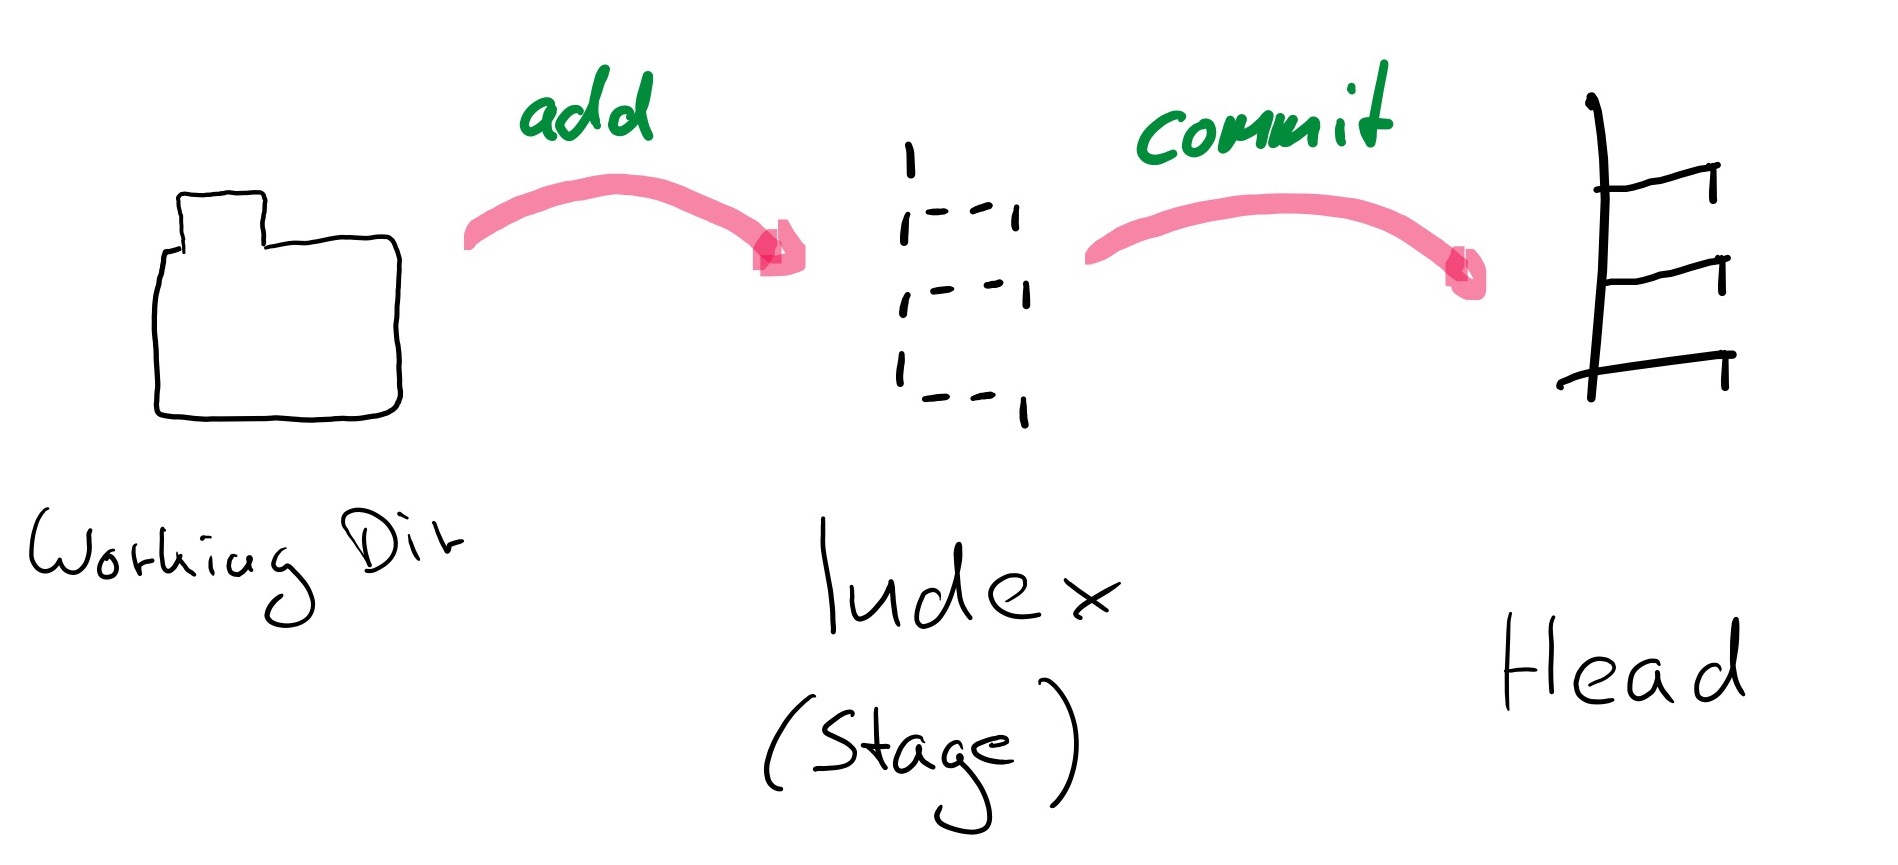 add
commit
Working Dir
Index
(Stage)
Head